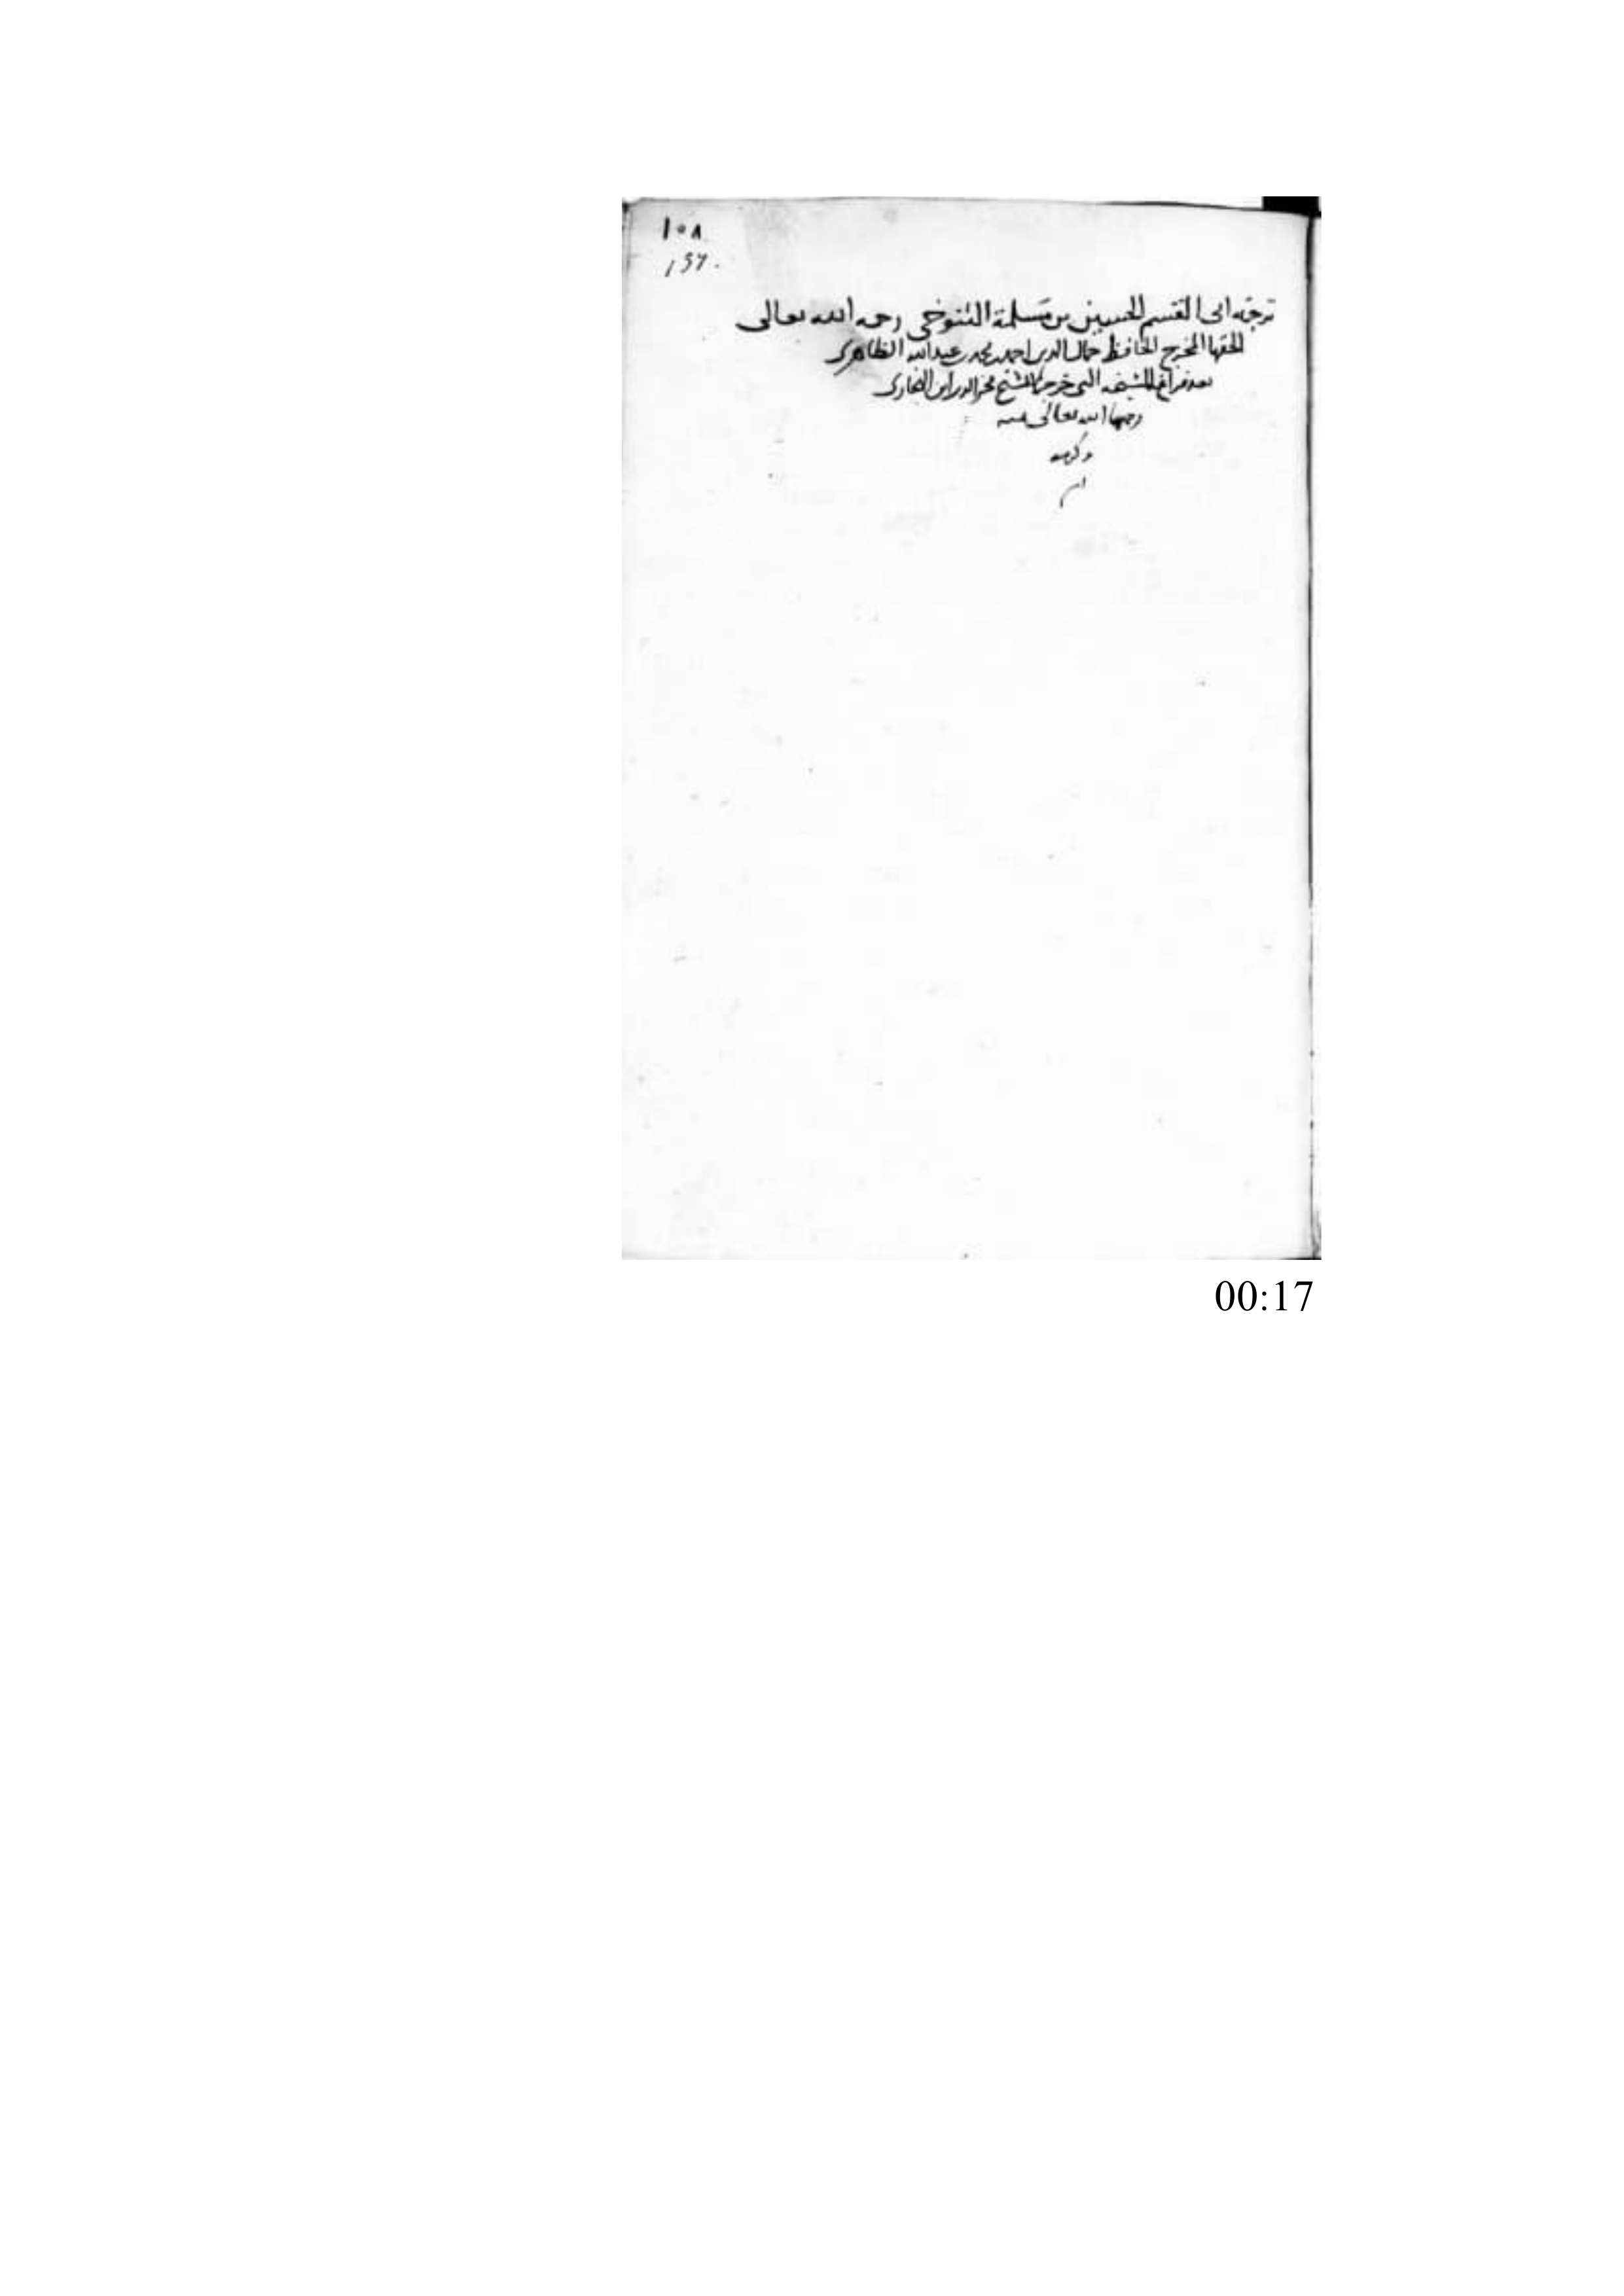 ١٥٨
157.
ترجمة ابى القسم الحسين بن سلمة التنوخى رحمه الله تعالى
الحقها المخرج الحافظ جمال الدين احمد بن محمد بن عبد الله الظاهرى
بعد فراغ المشيخه التى خرجها للشيخ فخر الدين ابن البخارى
رحمهما الله تعالى بمنه
وكرمه
00:17